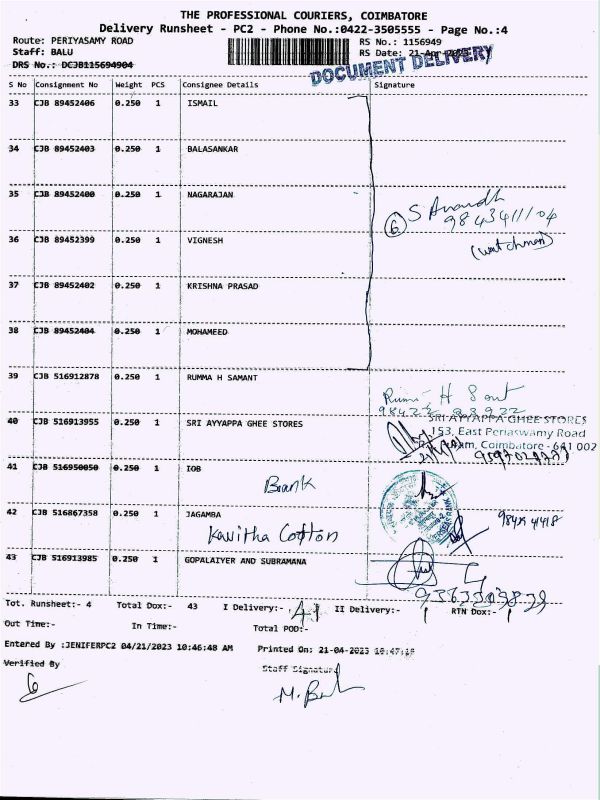 THE PROFESSIONAL COURIERS, COIMBATORE
Delivery Runsheet - PC2 - Phone No.:0422-3505555 - Page No.:4
Route: PERIYASAMY ROAD RS No.: 1156949
Staff: BALU RS Date: 21-Apr-2023
DRS No.: DCJB115694904
DOCUMENT DELIVERY
S No Consignment No Weight PCS Consignee Details Signature
33 CJB 89452406 0.250 1 ISMAIL
34 CJB 89452403 0.250 1 BALASANKAR
35 CJB 89452400 0.250 1 NAGARAJAN
6 S Anandh
9843411104
(watchman)
36 CJB 89452399 0.250 1 VIGNESH
37 CJB 89452402 0.250 1 KRISHNA PRASAD
38 CJB 89452404 0.250 1 MOHAMEED
39 CJB 516912878 0.250 1 RUMMA H SAMANT
40 CJB 516913955 0.250 1 SRI AYYAPPA GHEE STORES
SRI AYYAPPA GHEE STORES
153, East Periaswamy Road
Coimbatore - 641 002
41 CJB 516950050 0.250 1 IOB
Bank
42 CJB 516867358 0.250 1 JAGAMBA
Kavitha Cotton
43 CJB 516913985 0.250 1 GOPALAIYER AND SUBRAMANA
Tot. Runsheet:- 4 Total Dox:- 43 I Delivery:- 41 II Delivery:- 1 RTN Dox:- 1
Out Time:- In Time:- Total POD:-
Entered By :JENIFERPC2 04/21/2023 10:46:48 AM Printed On: 21-04-2023
Verified By Staff Signature
6